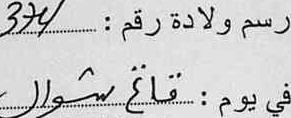 رسم ولادة رقم : 374
في يوم : فاتح شوال